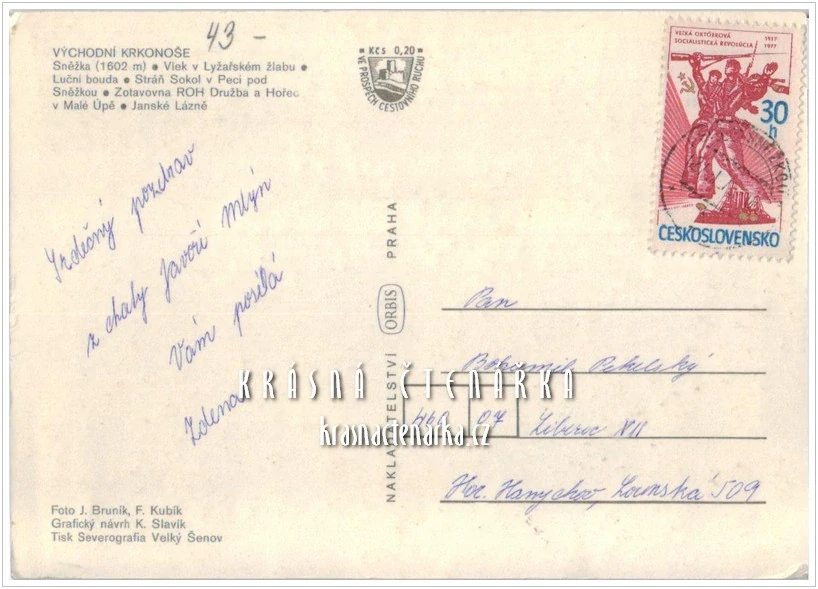 43 -
VÝCHODNÍ KRKONOŠE
Sněžka (1602 m) • Vlek v Lyžařském žlabu •
Luční bouda • Stráň Sokol v Peci pod
Sněžkou • Zotavovna ROH Družba a Hořec
v Malé Úpě • Janské Lázně
Kčs 0,20
VE PROSPĚCH CESTOVNÍHO RUCHU
VELKÁ ŘÍJNOVÁ
SOCIALISTICKÁ REVOLUCE
1917-
1977
30
h
ČESKOSLOVENSKO
Srdečný pozdrav
z chaty Javoří Mlýn
Vám posílá
Zdena
NAKLADATELSTVÍ ORBIS PRAHA
Pan
Bohumil Pekelský
460 07 Liberec XII
Hor. Hanychov, Lounská 509
KRÁSNÁ ČTENÁŘKA
krasnactenarka.cz
Foto J. Bruník, F. Kubík
Grafický návrh K. Slavík
Tisk Severografia Velký Šenov